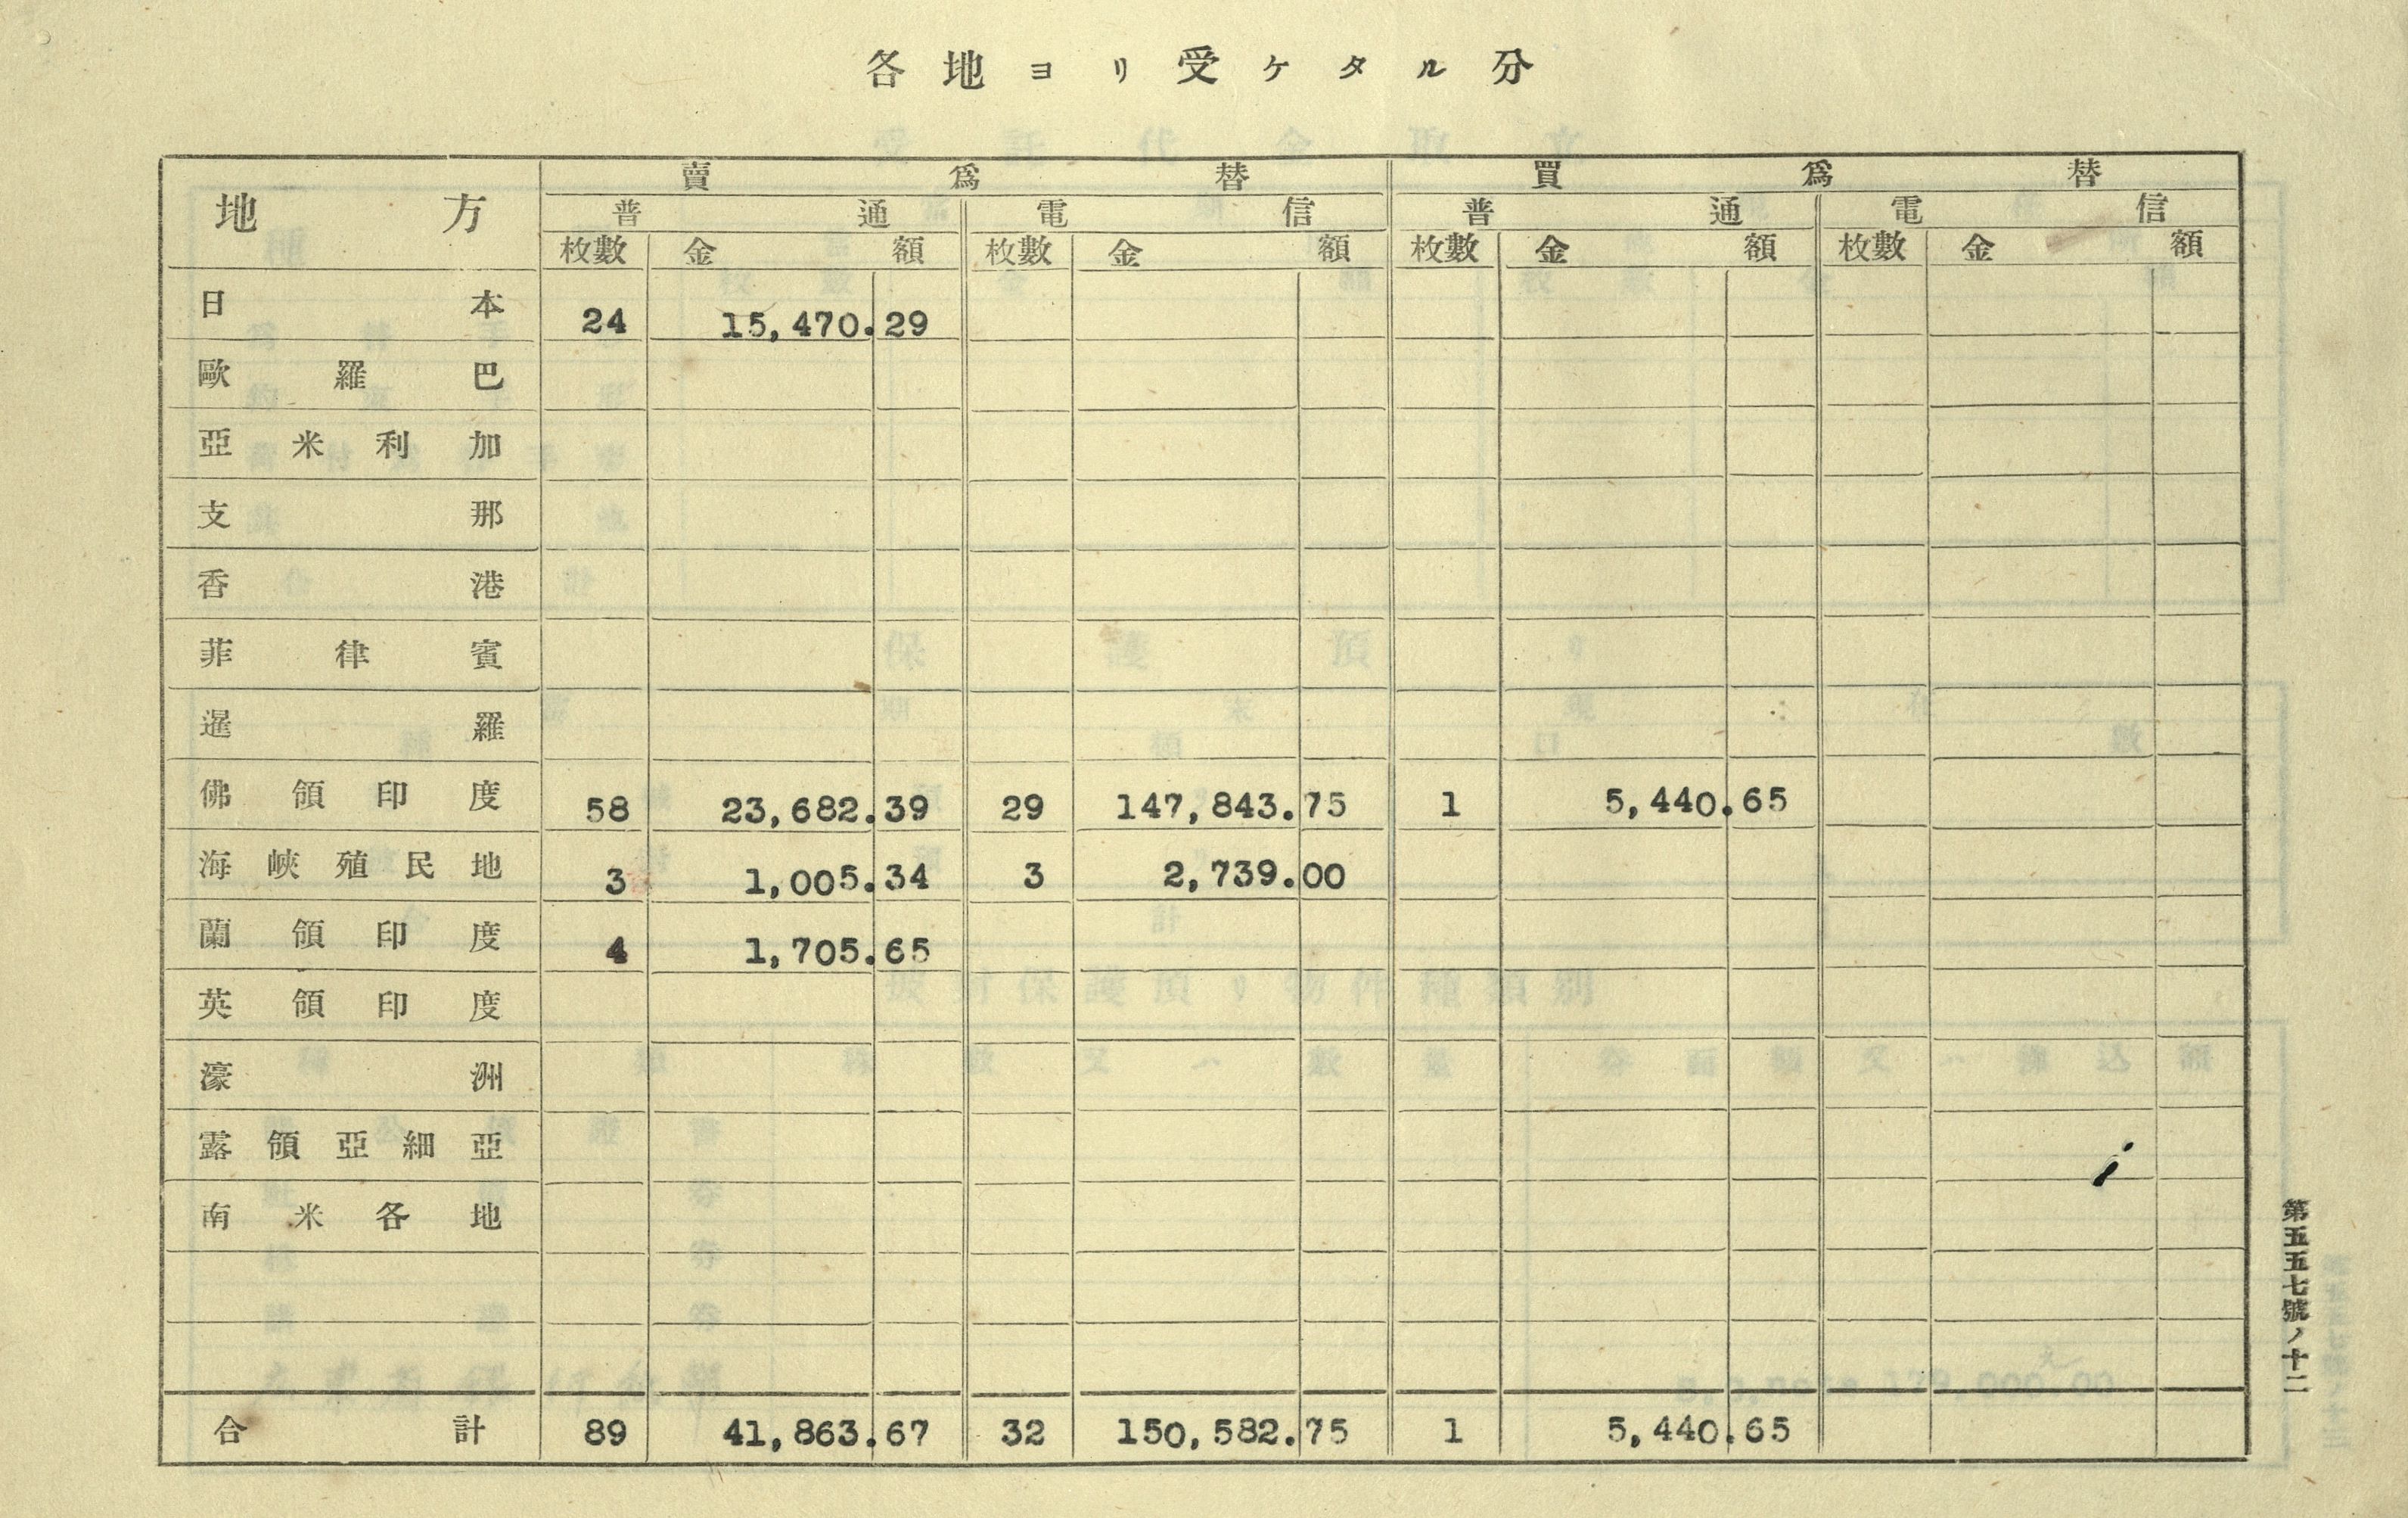 各地ヨリ受ケタル分
地方 賣爲替 買爲替
普通 電信 普通 電信
枚數 金額 枚數 金額 枚數 金額 枚數 金額
日本 24 15,470.29
歐羅巴
亞米利加
支那
香港
菲律賓
暹羅
佛領印度 58 23,682.39 29 147,843.75 1 5,440.65
海峽殖民地 3 1,005.34 3 2,739.00
蘭領印度 4 1,705.65
英領印度
濠洲
露領亞細亞
南米各地
合計 89 41,863.67 32 150,582.75 1 5,440.65
第五五七號ノ十二